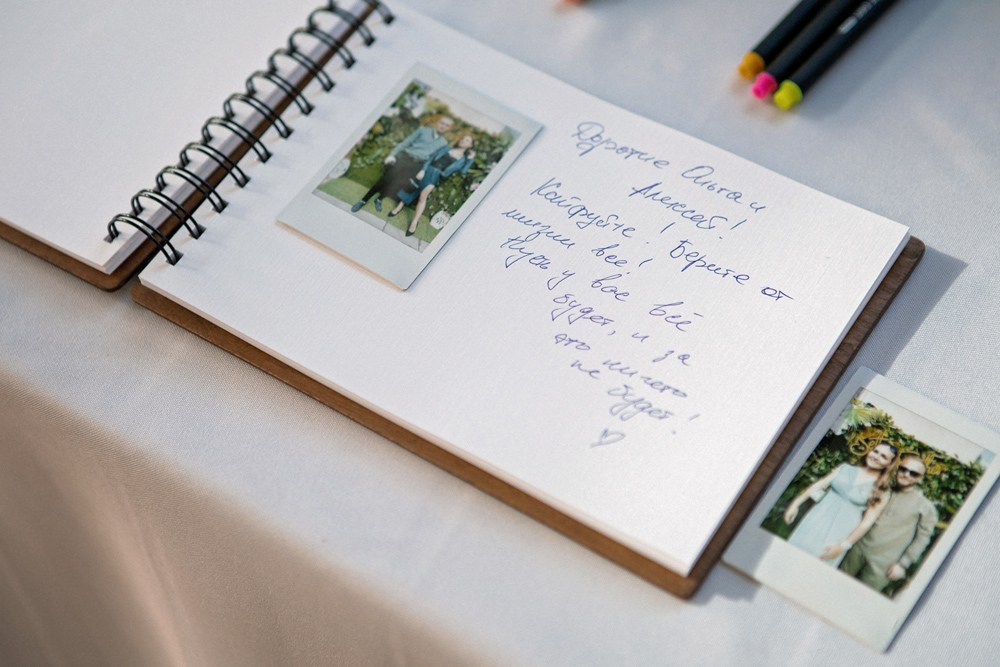 Дорогие Ольга и
Алексей!
Кайфуйте! Берите от
жизни всё!
Пусть у вас всё
будет, и за
это ничего
не будет!